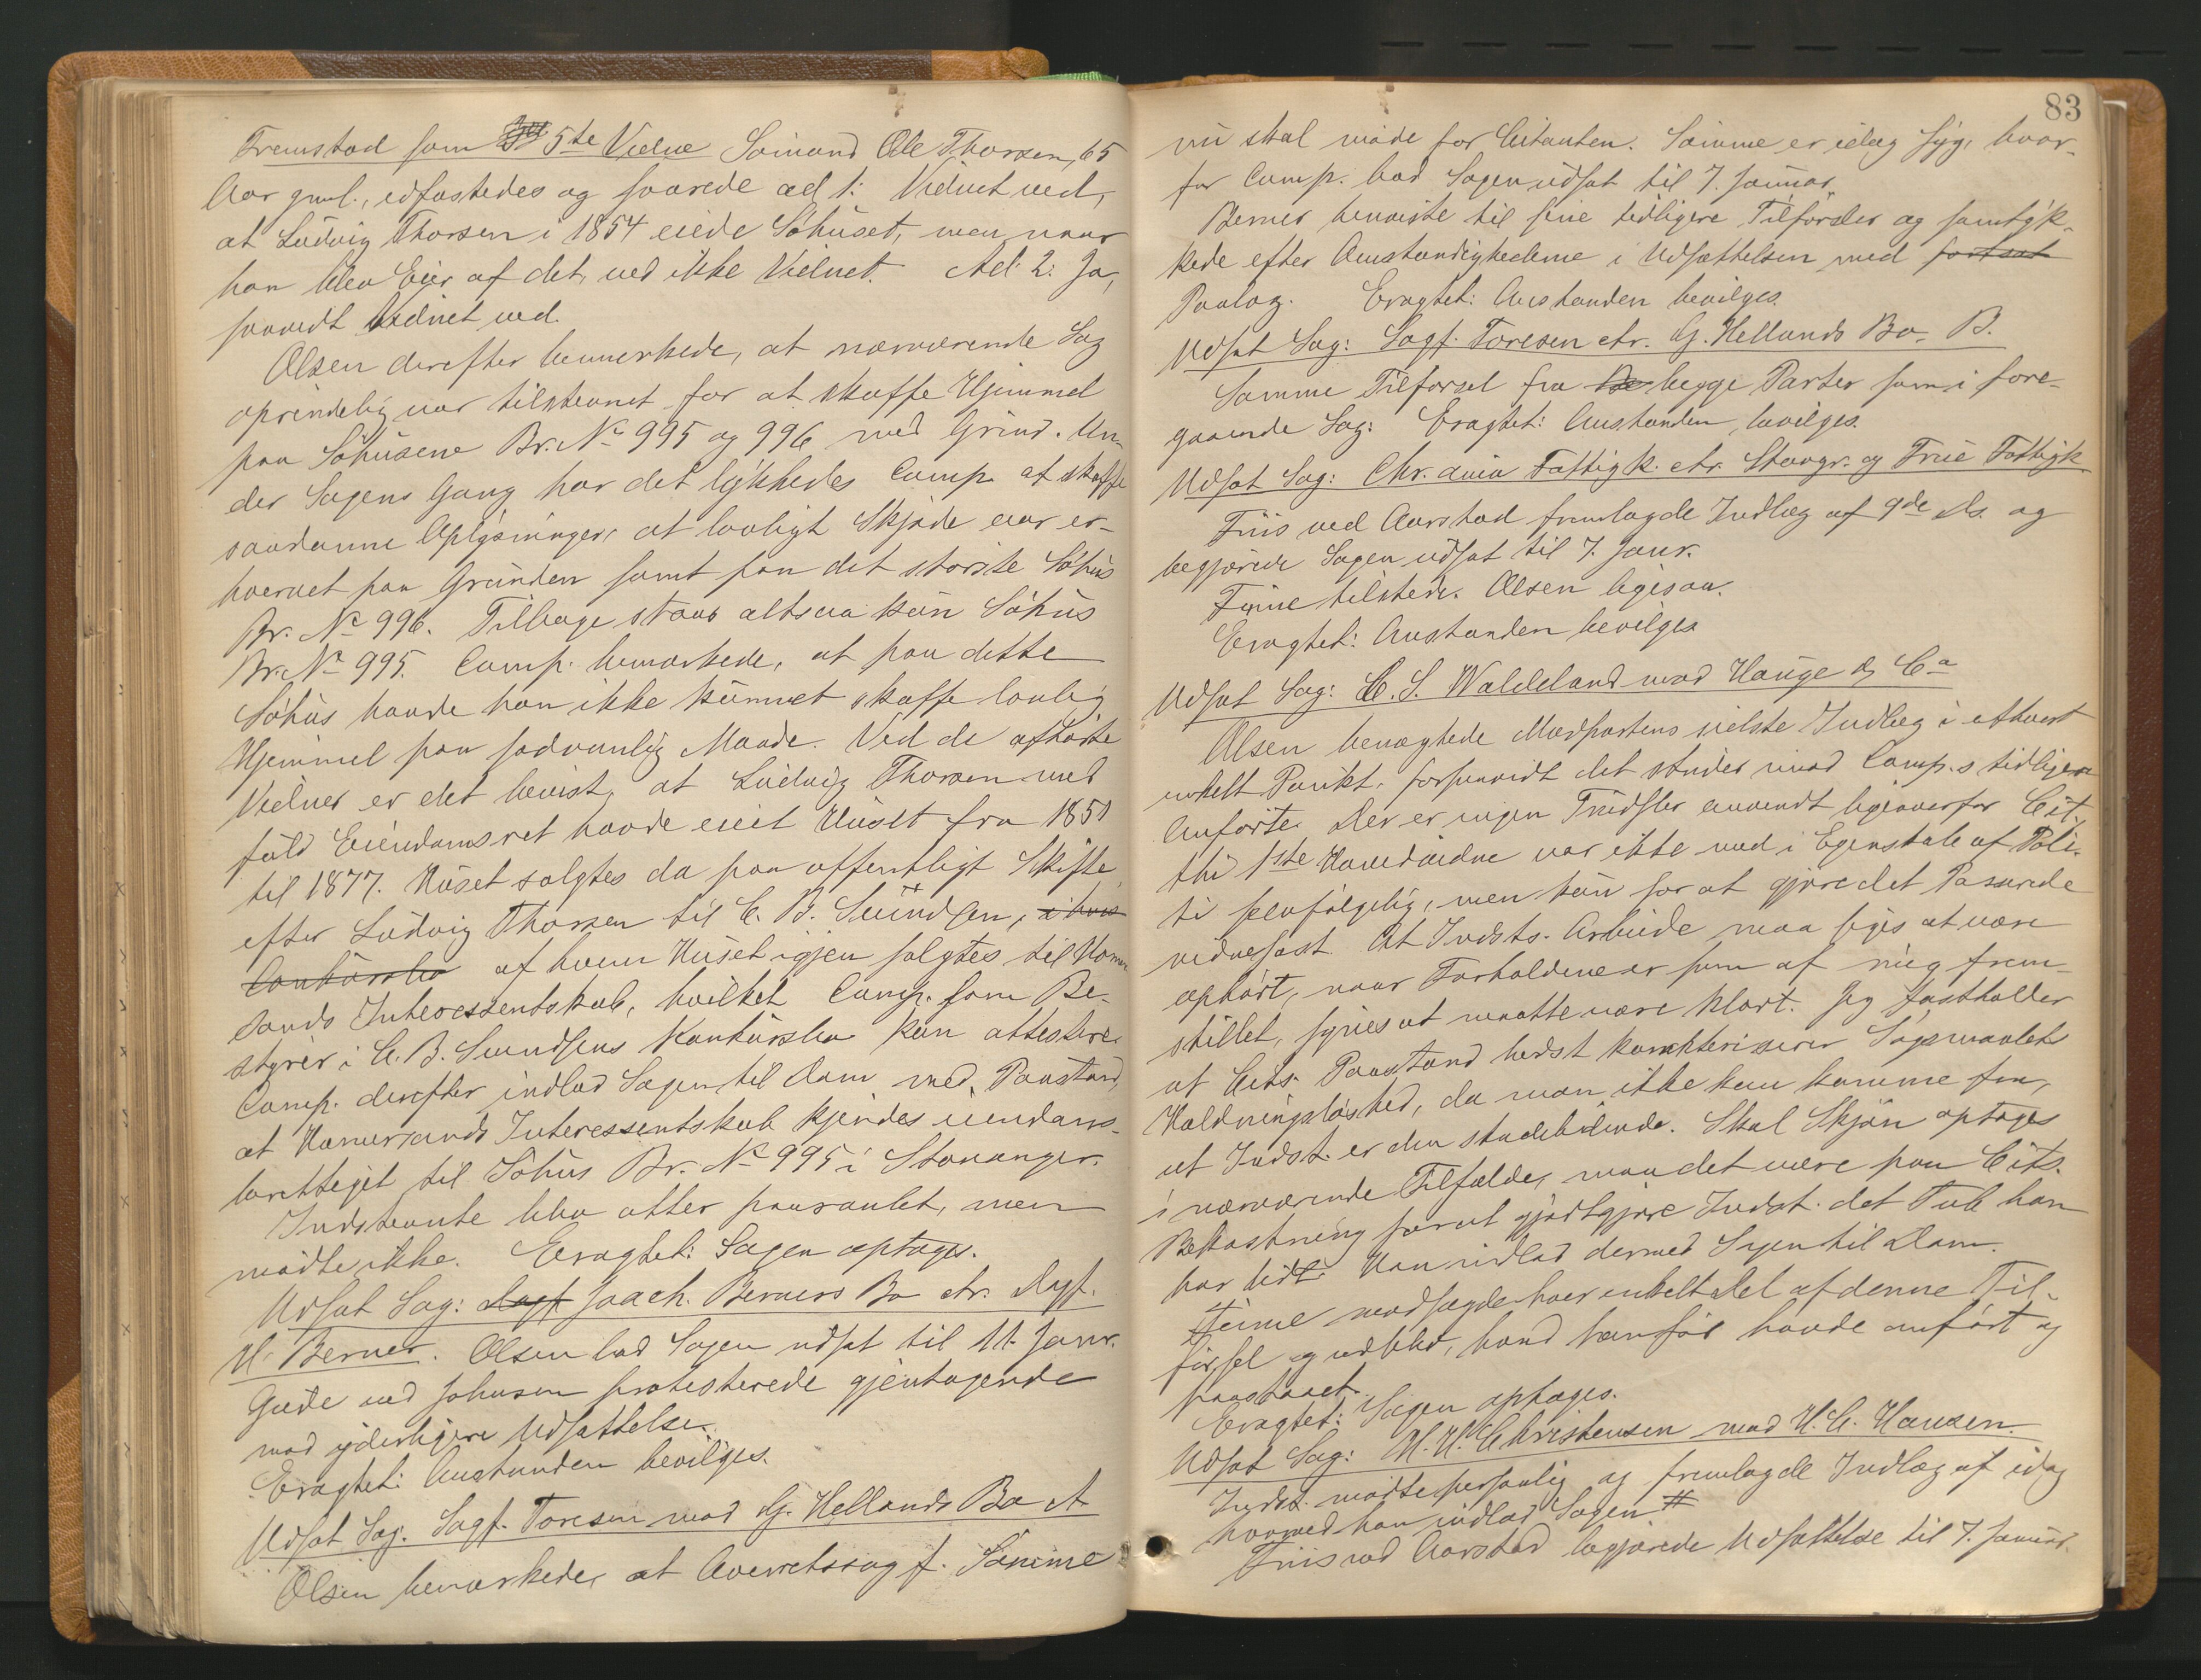 Fremstod som 5te Vidne Sömand Ole Thorsen, 65
Aar gml., edfæstedes og svarede ad 1: Vidnet ved,
at Ludvig Thorsen i 1854 eiede Söhuset, men naar
han blev Eier af det, ved ikke Vidnet. Ad. 2: Ja,
saavidt Vidnet ved.
Olsen derefter bemærkede, at nærværende Sag
oprindelig var tilstevnet for at skaffe Hjemmel
paa Söhusene Br. No 995 og 996 med Grund. Un-
der Sagens Gang har det lykkedes Comp. at skaffe
saadanne Oplysninger, at lovligt Skjöde var er-
hvervet paa Grunden samt paa det störste Söhus
Br. No 996. Tilbage staar altsaa kun Söhus
Br. No 995. Comp. bemærkede, at paa dette
Söhus havde han ikke kunnet skaffe lovlig
Hjemmel paa sædvanlig Maade. Ved de afhörte
Vidner er det bevist, at Ludvig Thorsen med
fuld Eiendomsret havde eiet Huset fra 1851
til 1877. Huset solgtes da paa offentligt Skifte
efter Ludvig Thorsen til C. B. Svendsen, i hvis
Conkursbo af hvem Huset igjen solgtes til Hommer-
sands Interessentskab, hvilket Comp. som Be-
styrer i C. B. Svendsens Konkursbo kan attestere.
Comp. derefter indlod Sagen til Dom med Paastand,
at Homersands Interessentskab kjendes eiendoms-
berettiget til Söhus Br. No 995 i Stavanger.
Indstevnte blev atter paaraabt, men
mödte ikke. Eragtet: Sagen optages.
Udsat Sag: Sagf. Joach. Berners Bo ctr. Sagf.
H. Berner. Olsen bad Sagen udsat til 11. Janr.
Gude ved Johnsen protesterede gjentagende
mod yderligere Udsættelse.
Eragtet: Anstanden bevilges.
Udsat Sag. Sagf. Toresen mod G. Hellands Bo A
Olsen bemærkede, at Overretssagf. Sömme
83
nu skal möde for Citanten. Sömme er idag syg, hvor-
for Comp. bad Sagen udsat til 7. Januar.
Berner henviste til sine tidligere Tilförsler og samtyk-
kede efter Omstændighederne i Udsættelsen med fortsat
Paalæg. Eragtet: Anstanden bevilges.
Udsat Sag: Sagf. Toresen ctr. G. Hellands Bo B.
Samme Tilförsel fra De begge Parter som i fore-
gaaende Sag: Eragtet: Anstanden bevilges.
Udsat Sag: Chr.ania Fattigk. ctr. Stavgr. og Frue Fattigk.
Friis ved Aarstad fremlagde Indlæg af 9de ds. og
begjærede Sagen udsat til 7. Janr.
tilstede. Olsen ligesaa.
Eragtet: Anstanden bevilges
Udsat Sag: C. S. Waldeland mod Hauge & Co
Olsen benægtede Modpartens sidste Indlæg i ethvert
enkelt Punkt, forsaavidt det strider mod Comp.s tidligere
Anförte. Der er ingen Trudsler anvendt ligeoverfor Cit.
thi 1ste Hovedvidne var ikke med i Egenskab af Poli-
ti, men kun for at gjöre det Passerede
vidnefast. At Indsts. Arbeide maa siges at være
ophört, naar Forholdene er som af mig frem-
stillet, synes at maatte være klart. Jeg fastholder
at Cits. Paastand bedst karakteriserer Sögsmaalets
Holdningslöshed, da man ikke kan komme fra,
at Indst. er den skadelidende. Skal Skjön optages
i nærværende Tilfælde, maa det være paa Cits.
Bekostning for at godtgjöre Indst. det Tab han
har lidt. Han indlod dermed Sagen til Dom.
modsagde hver enkelt Del af denne Til-
försel og ved, hvad han för havde anfört og
paastaaet.
Eragtet: Sagen optages.
Udsat Sag: H. H. Christensen mod H. C. Hansen.
Indst. mödte personlig og fremlagde Indlæg af idag
hvormed han indlod Sagen #
Friis ved Aarstad begjærede Udsættelse til 7. Januar.